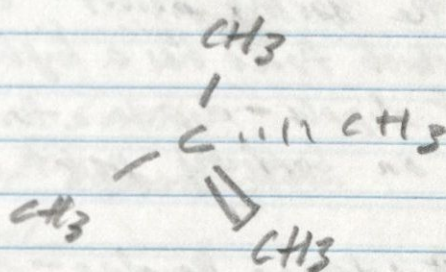 CH3
C CH3
CH3
CH3